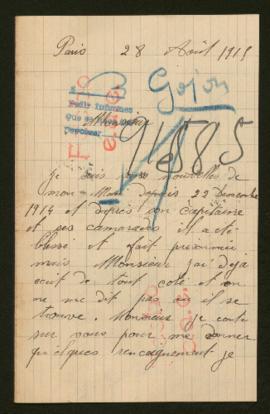 Paris 28 Août 1915
Gojon
Pedir informes
que se
Monsieur
91585
Je suis sans nouvelles de
mon Mari depuis 22 Décembre
1914 et d'après son Capitaine
et ses camarades il a été
blessé et fait prisonnier
mais Monsieur j'ai déjà
écrit de tout coté et on
ne me dit pas où il se
trouve. Monsieur je conte
sur vous pour me donner
quelques renseignement je